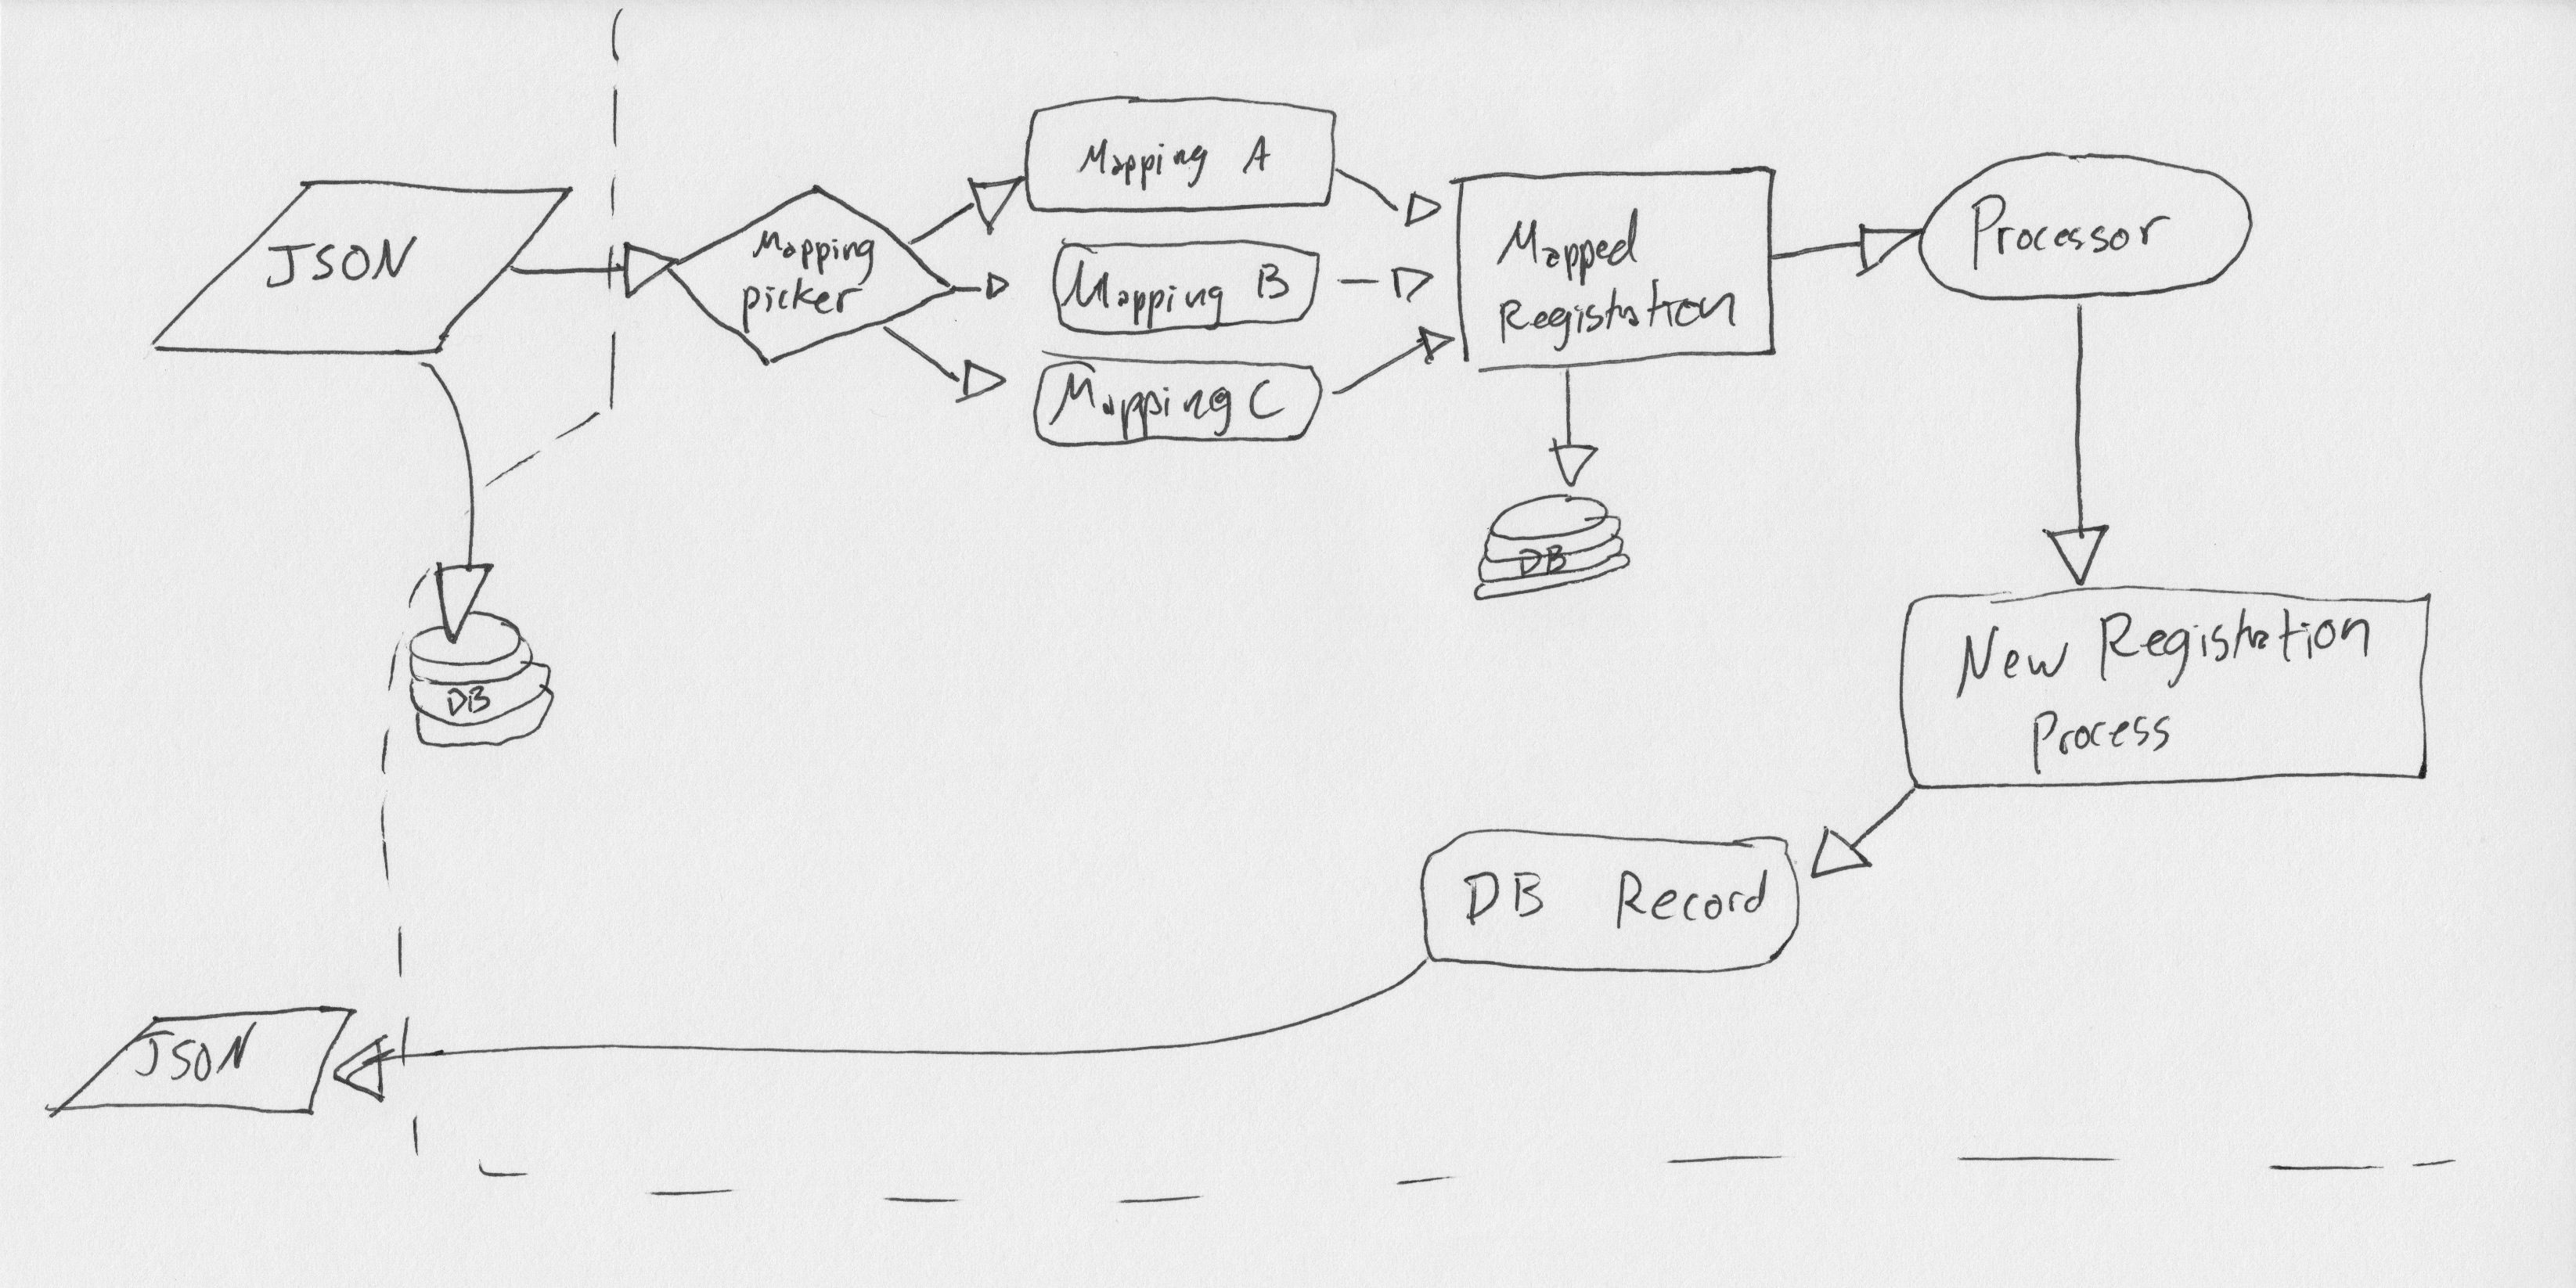 JSON
Mapping
picker
Mapping A
Mapping B
Mapping C
Mapped
Registration
Processor
DB
DB
New Registration
Process
DB Record
JSON